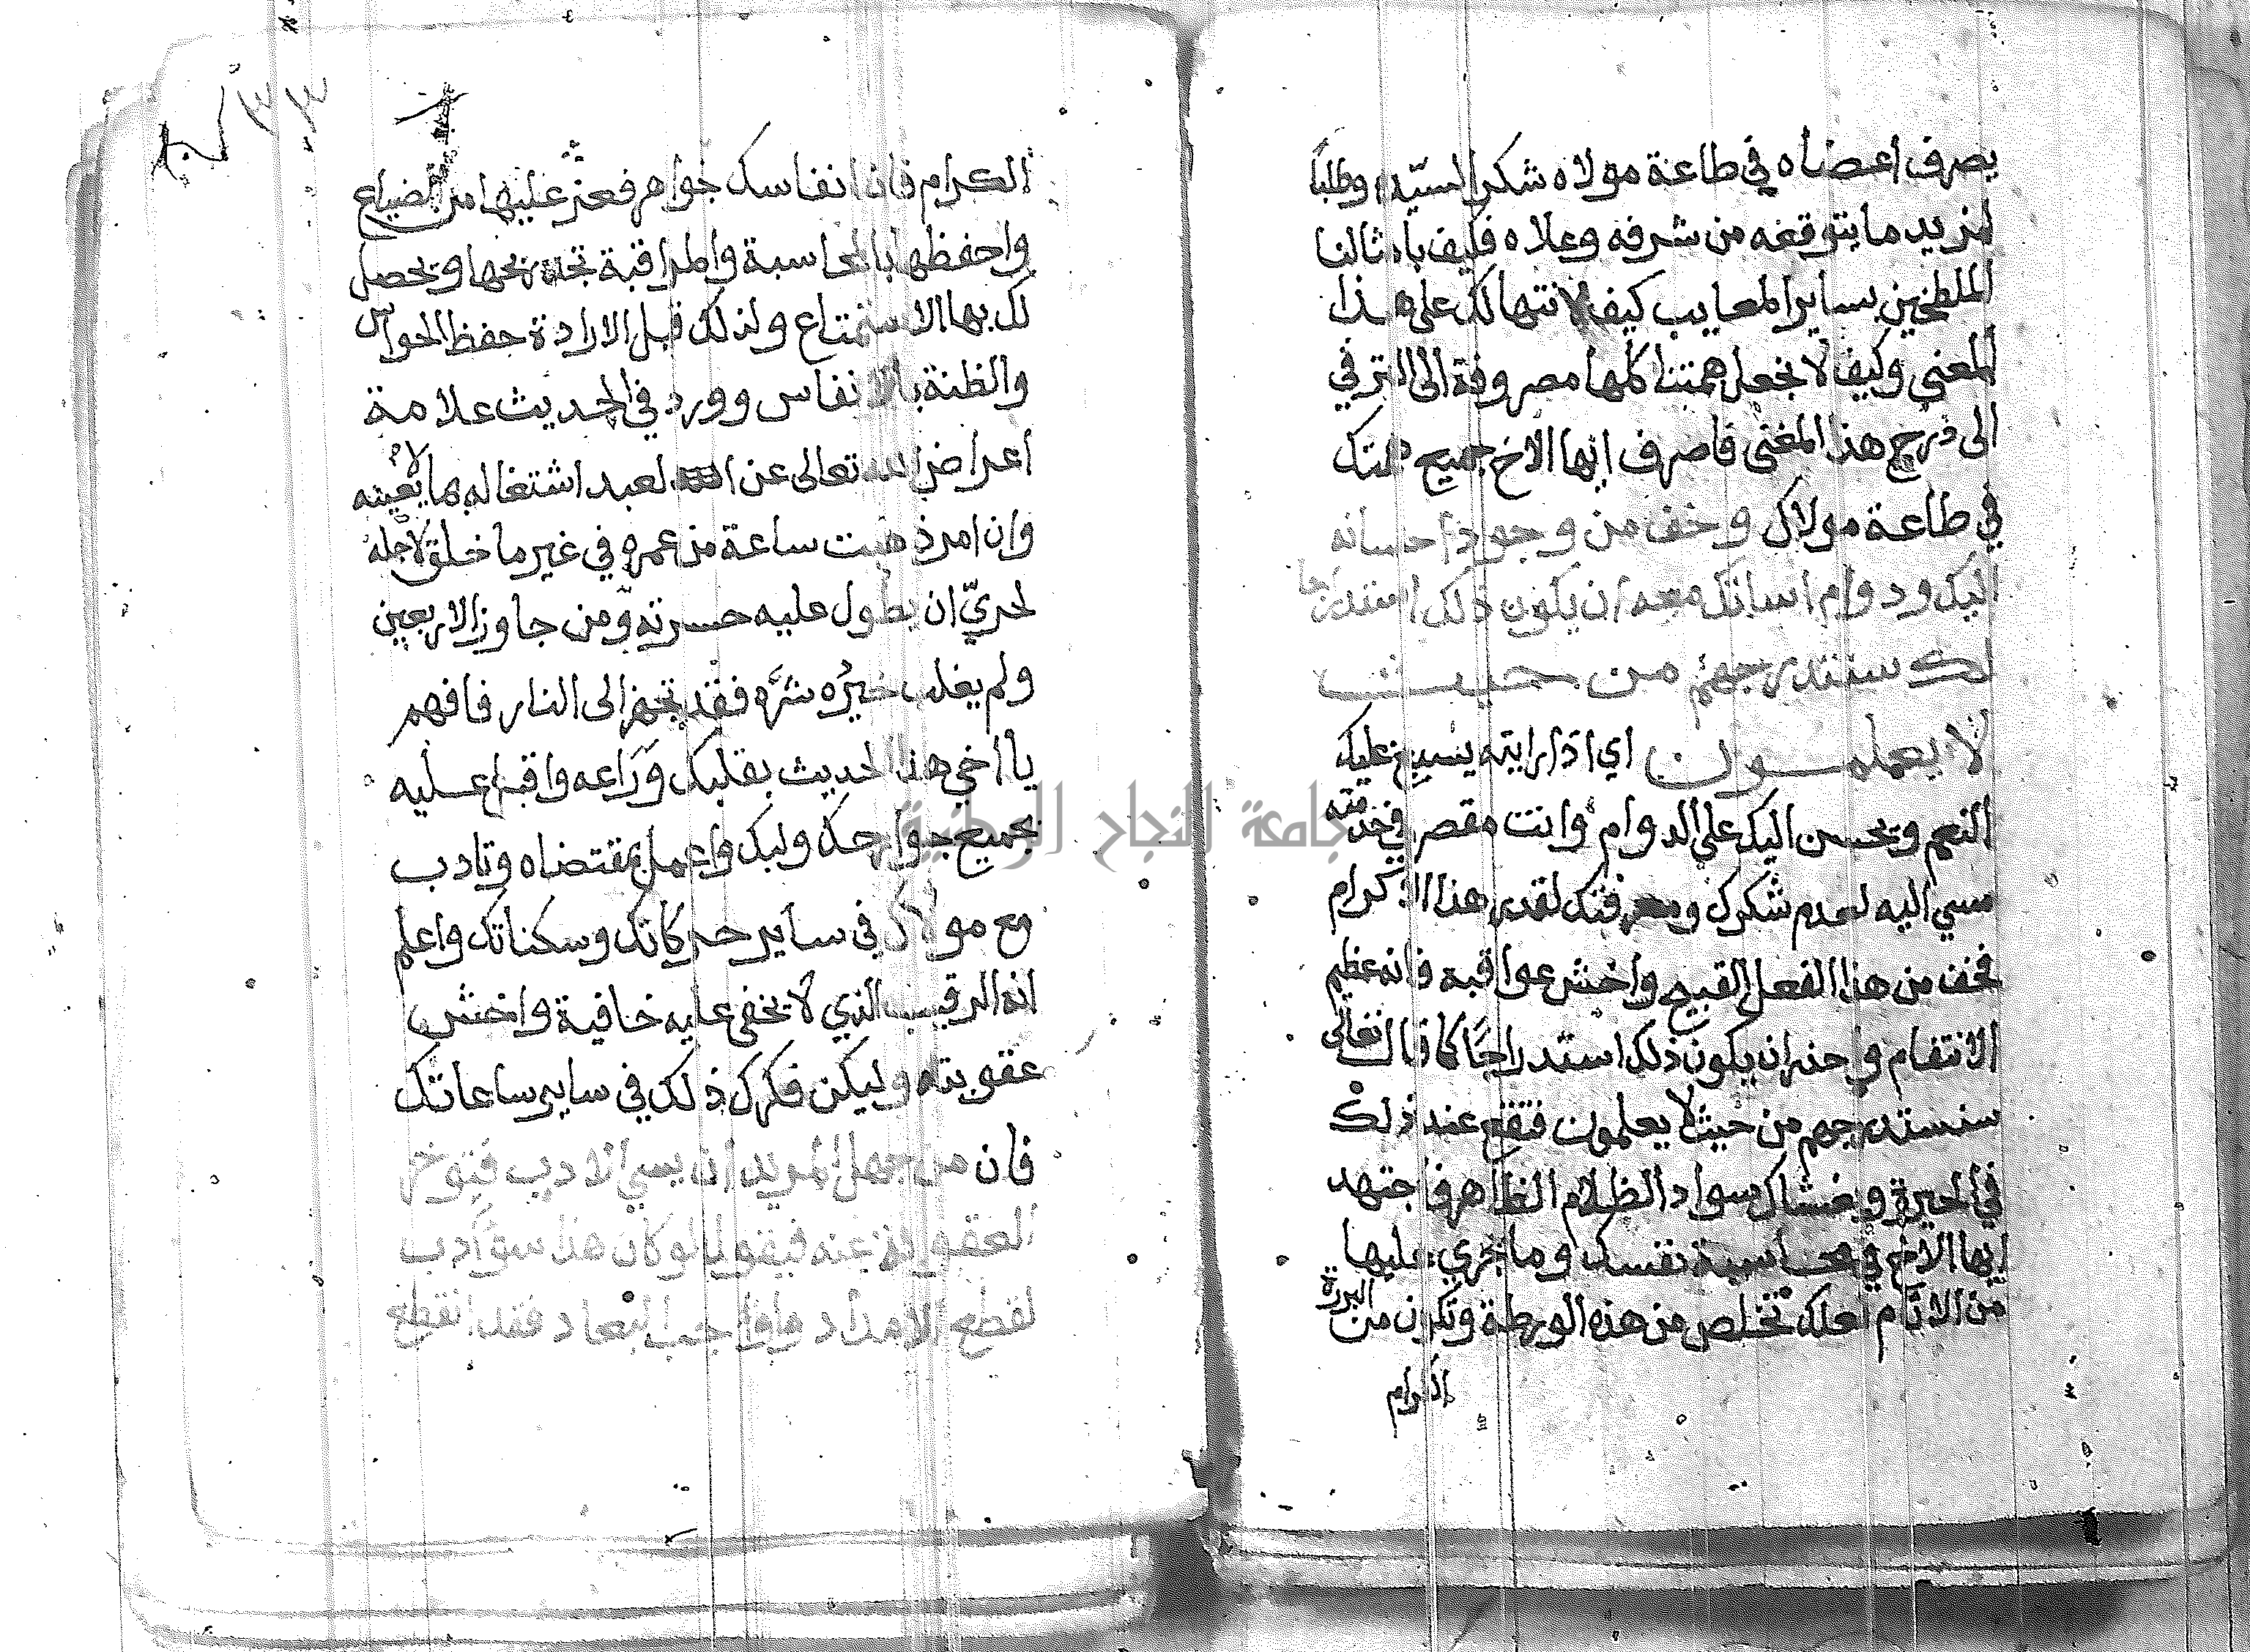 يصرف اعضاه في طاعة مولاه شكرا لسيّده وطلبا
لمزيد ما يتوقعه من شرفه وعلاه فكيف بامثالنا
الملطخين بساير المعايب كيف لا ننتهالك على هذا
المعنى وكيف لا نجعل همتنا كلها مصروفة الى الترقي
الى درج هذا المغنى فاصرف ايها الاخ جميع همتك
في طاعة مولاك وخف من وجود احسانه
اليك ودوام اساتك معه ان يكون ذلك استدراجا
لك سنستدرجهم من حيث
لا يعلمون اي اذا رايته يسبغ عليك
النعم ويحسن اليك على الدوام وانت مقصر في خدمته
مسي اليه لعدم شكرك ومعرفتك لقدر هذا الاكرام
فخف من هذا الفعل القبيح واخش عواقبه فانه عظيم
الانتقام واحذر ان يكون ذلك استدراجًا كما قال تعالى
سنستدرجهم من حيث لا يعلمون فتقع عند ذلك
في الحيرة ويغشاك سواد الظلام الظاهر فاجتهد
ايها الاخ في محاسبة نفسك وما تجري عليها
من الاثام لعلك تخلص من هذه الورطة وتكون من البررة
الكرام
الكرام فان انفاسك جواهر فعزّ عليها من الضياع
واحفظها بالمحاسبة والمراقبة تجد ربحها ويحصل
لك بها الاستمتاع ولذلك قيل الارادة حفظ الحواس
والظنة بالانفاس وورد في الحديث علامة
اعراض الله تعالى عن العبد اشتغاله بما لا يعينه
وان امرا ذهبت ساعة من عمره في غير ما خلق لاجله
لحريّ ان يطول عليه حسرته ومن جاوز الاربعين
ولم يغلب خيرُه شرَّه فقد تجهز الى النار فافهم
يا اخي هذا الحديث بقلبك وراعه واقبل عليه
بجميع جوارحك ولبك واعمل بمقتضاه وتادب
مع مولاك في ساير حركاتك وسكناتك واعلم
انه الرقيب الذي لا يخفى عليه خافية واخش
عقوبته وليكن فكرك ذلك في ساير ساعاتك
فان من جهل المريد ان يسي الادب فتوخر
العقوبة عنه فيقول لو كان هذا سوّ أدب
لقطع الامداد واوجب البعاد فقد انقطع
جامعة النجاح الوطنية